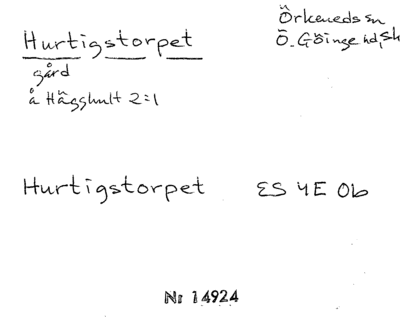 Hurtigstorpet
gård
å Hägghult 2:1
Örkeneds sn
Ö. Göinge hd, Sk
Hurtigstorpet ES 4E 0b
Nr 14924